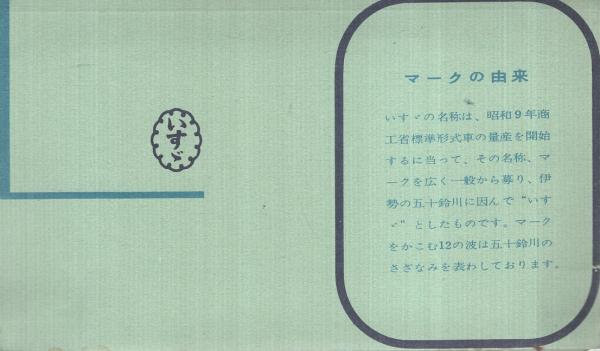 いすゞ
マークの由来
いすゞの名称は、昭和9年商
工省標準形式車の量産を開始
するに当って、その名称、マ
ークを広く一般から募り、伊
勢の五十鈴川に因んで“いす
ゞ”としたものです。マーク
をかこむ12の波は五十鈴川の
さざなみを表わしております。